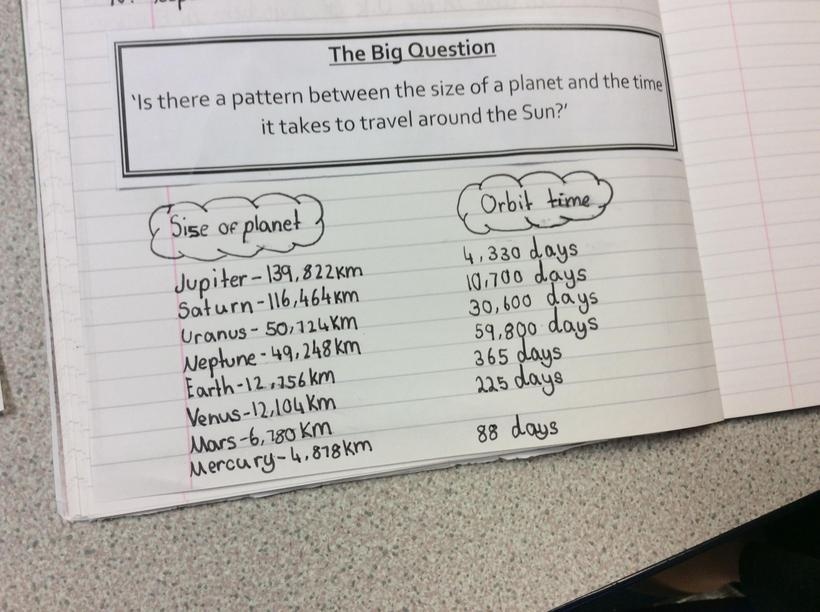 The Big Question
'Is there a pattern between the size of a planet and the time
it takes to travel around the Sun?'
Sise of planet
Orbit time
Jupiter - 139,822km
4,330 days
Saturn - 116,464km
10,700 days
Uranus - 50,724km
30,600 days
Neptune - 49,248km
59,800 days
Earth - 12,756km
365 days
Venus - 12,104km
225 days
Mars - 6,780km
Mercury - 4,878km
88 days